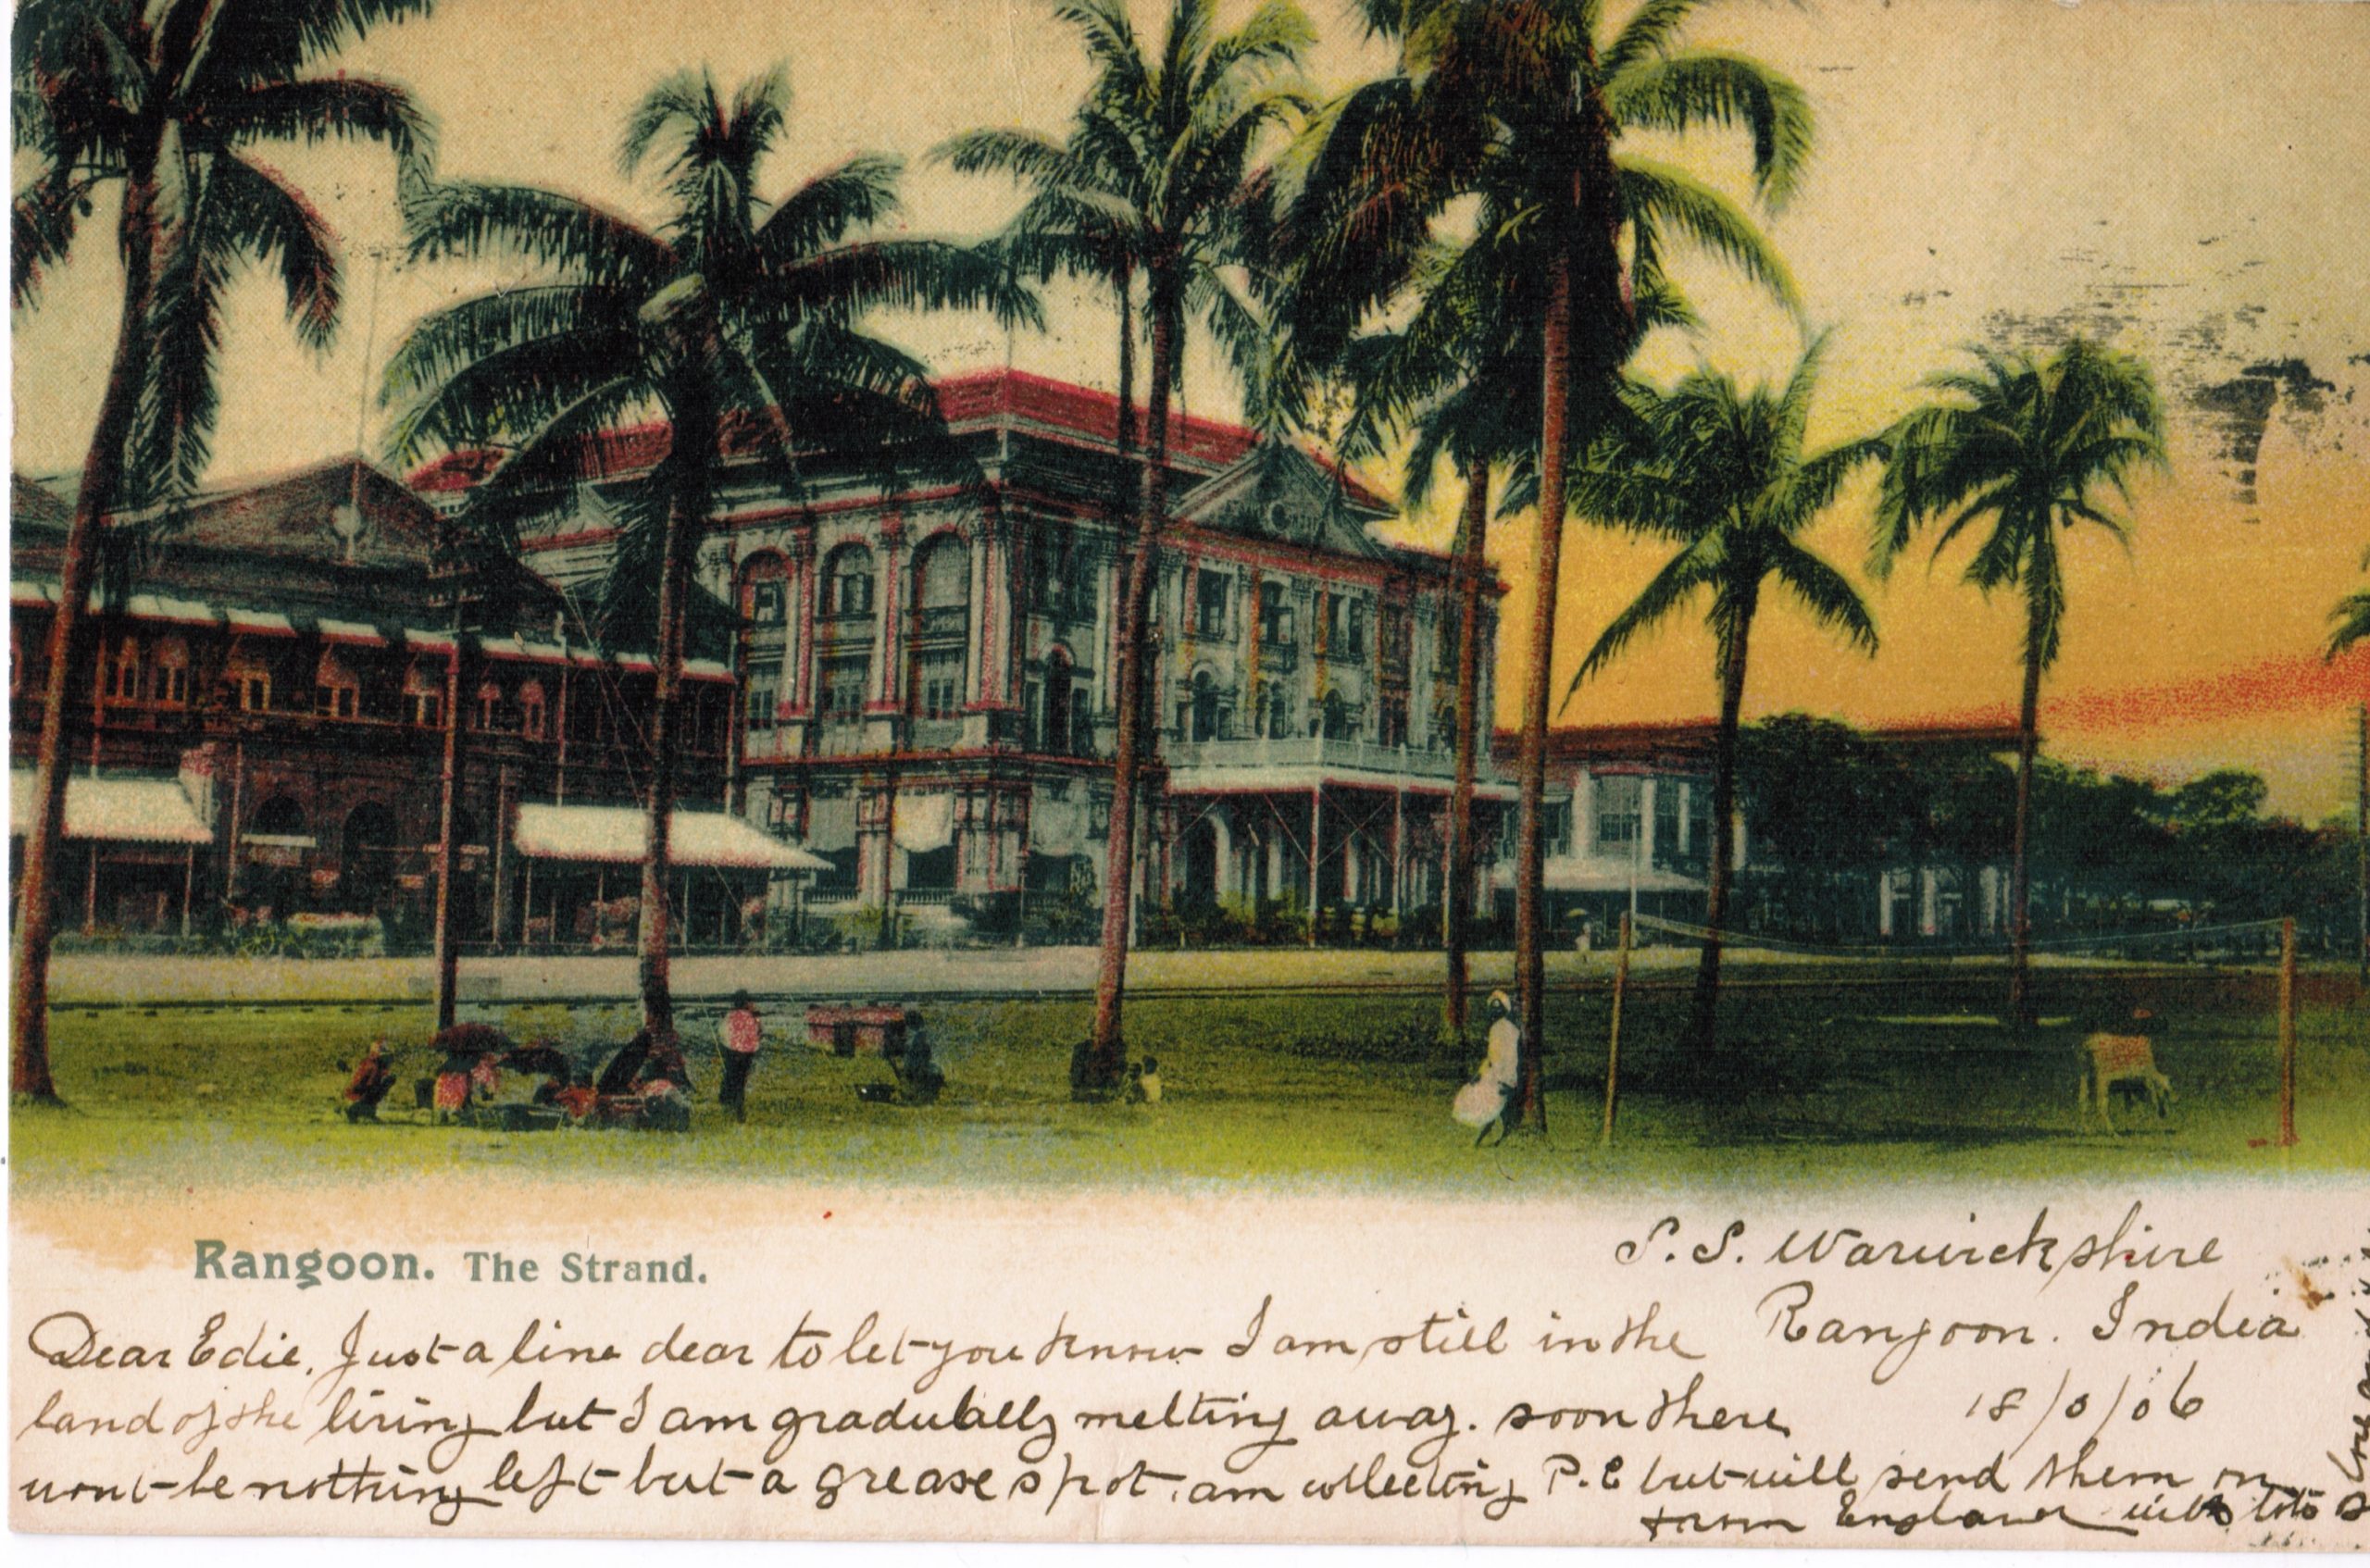 Rangoon. The Strand.
S. S. Warwickshire
Rangoon. India
18/0/06
Dear Edie. Just a line dear to let you know I am still in the
land of the living but I am gradually melting away. soon there
wont be nothing left but a grease spot. am collecting P.C but will send them on
from England with lots
love and